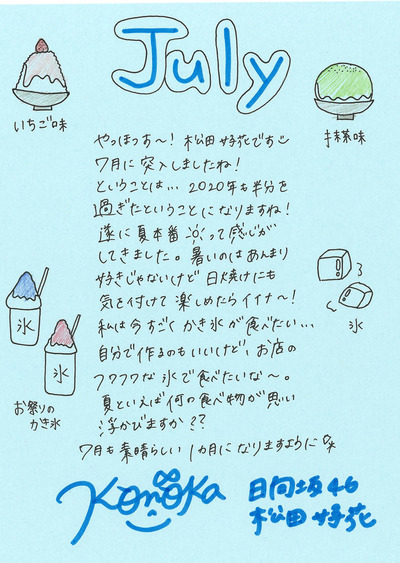 July
いちご味
抹茶味
やっほっすー〜! 松田好花です
7月に突入しましたね!
ということは… 2020年も半分を
過ぎたということになりますね!
遂に夏本番って感じが
してきました。暑いのはあんまり
好きじゃないけど 日焼けにも
気を付けて 楽しめたらイイナ〜!
私は今すごく かき氷が食べたい…
自分で作るのもいいけど、お店の
フワフワな 氷で食べたいな〜。
夏といえば何の食べ物が思い
浮かびますか??
7月も素晴らしい1カ月になりますように
氷
氷
お祭りの
かき氷
氷
Konoka
日向坂46
松田好花